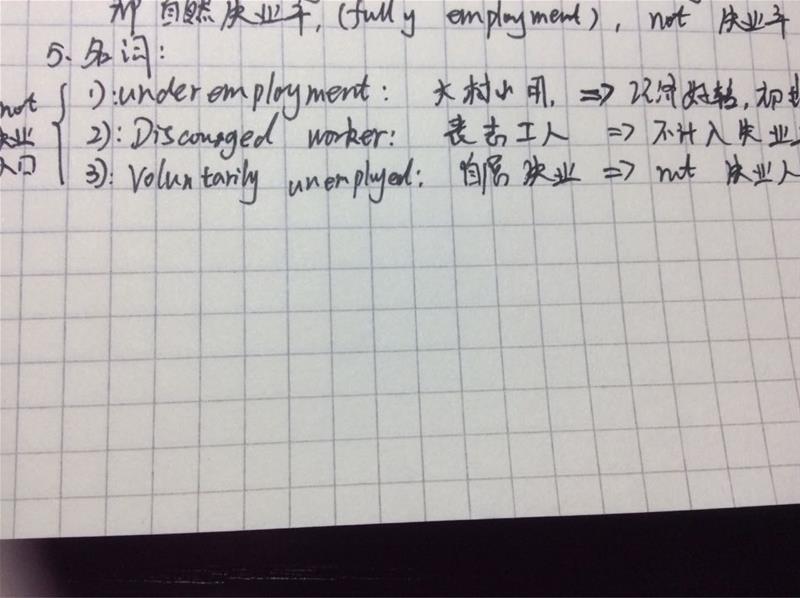 自然失业率, (fully employment), not 失业率
5. 名词:
not 失业人口
1): underemployment: 大材小用, => 经济好转, 初
2): Discouraged worker: 丧志工人 => 不计入失业
3): Voluntarily unemplyed: 自愿失业 => not 失业人